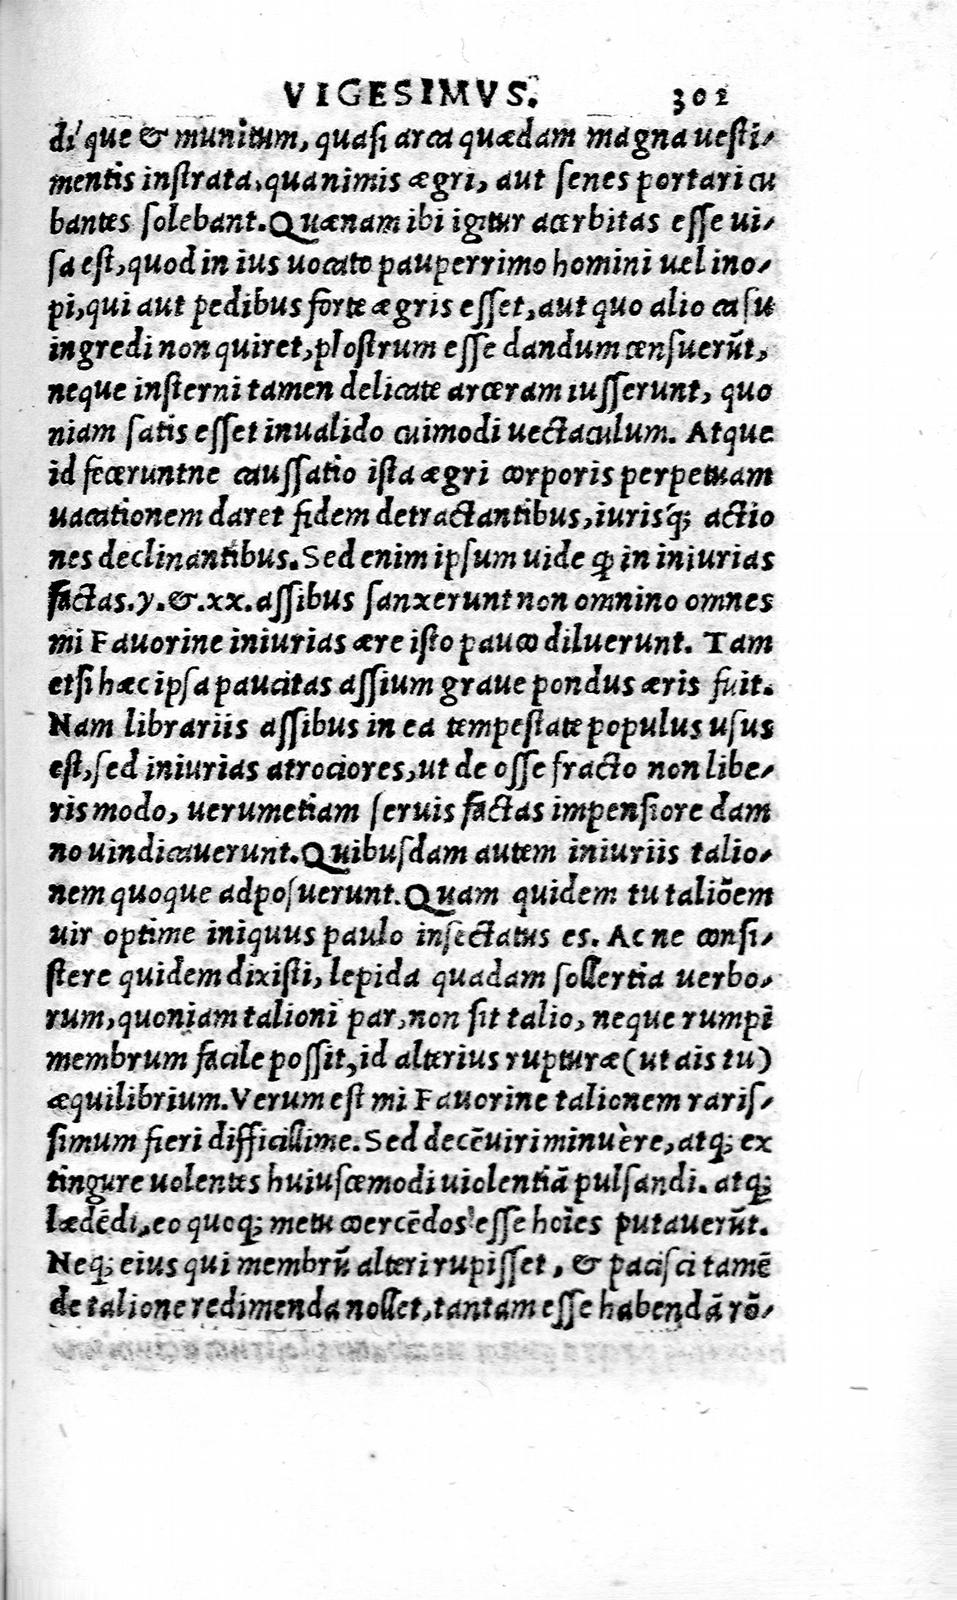 VIGESIMVS. 302
di que & munitum, quasi arca quædam magna uesti-
mentis instrata, quanimis ægri, aut senes portari cu
bantes solebant. Quænam ibi igitur acerbitas esse ui-
sa est, quod in ius uocato pauperrimo homini uel ino-
pi, qui aut pedibus forte ægris esset, aut quo alio casu
ingredi non quiret, plostrum esse dandum censuerūt,
neque insterni tamen delicate arceram iusserunt, quo
niam satis esset inualido cuimodi uectaculum. Atque
id feceruntne caussatio ista ægri corporis perpetuam
uacationem daret fidem detractantibus, iurisq; actio
nes declinantibus. Sed enim ipsum uide ꝙ in iniurias
factas. y. &. xx. assibus sanxerunt non omnino omnes
mi Fauorine iniurias ære isto pauco diluerunt. Tam
etsi hæc ipsa paucitas assium graue pondus æris fuit.
Nam librariis assibus in ea tempestate populus usus
est, sed iniurias atrociores, ut de osse fracto non libe-
ris modo, uerumetiam seruis factas impensiore dam
no uindicauerunt. Quibusdam autem iniuriis talio-
nem quoque adposuerunt. Quam quidem tu taliōem
uir optime iniquus paulo insectatus es. Ac ne consi-
stere quidem dixisti, lepida quadam sollertia uerbo-
rum, quoniam talioni par, non sit talio, neque rumpi
membrum facile possit, id alterius rupturæ (ut ais tu)
æquilibrium. Verum est mi Fauorine talionem raris-
simum fieri difficillime. Sed decēuiri minuère, atq; ex
tingure uolentes huiuscemodi uiolentiā pulsandi. atq;
lædēdi, eo quoq; metu coercēdos esse hoīes putauerūt.
Neq; eius qui membrū alteri rupisset, & pacisci tamē
de talione redimenda nollet, tantam esse habendā rō-